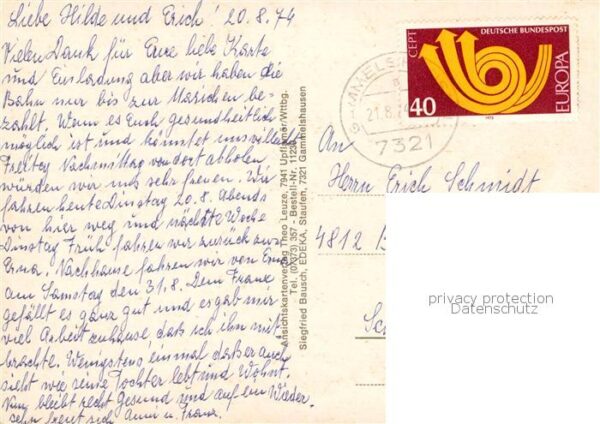 Liebe Hilde und Erich! 20.8.74
Vielen Dank für Eure liebe Karte
und Einladung aber wir haben die
Bahn nur bis zur Marichen be-
zahlt. Wenn es Euch gesundheitlich
möglich ist und könntet uns vielleicht
Freitag Nachmittag von dort abholen
würden wir uns sehr freuen. Wir
fahren heute Dinstag 20.8. Abends
von hier weg und nächste Woche
Dinstag Früh fahren wir zurück zur
Erna. Nachhause fahren wir von Erna
am Samstag den 31.8. Dem Franz
gefällt es ganz gut und ergab mir
viel Arbeit zuhause, daß ich ihn mit
brachte. Wenigstens einmal daß er auch
sieht wie seine Tochter lebt und Wohnt.
Nun bleibt recht Gesund und auf ein Wieder-
sehn freut sich Anni u. Franz.
Ansichtskartenverlag Theo Leuze, 7941 Upflamör/Wttbg.
Tel. (07373) 357 - Bestell-Nr. 1123
Siegfried Bausch, EDEKA, Staufen, 7321 Gammelshausen
CEPT
DEUTSCHE BUNDESPOST
EUROPA
40
1973
21.8.74
7321
An
Herrn Erich Schmidt
4812
privacy protection
Datenschutz